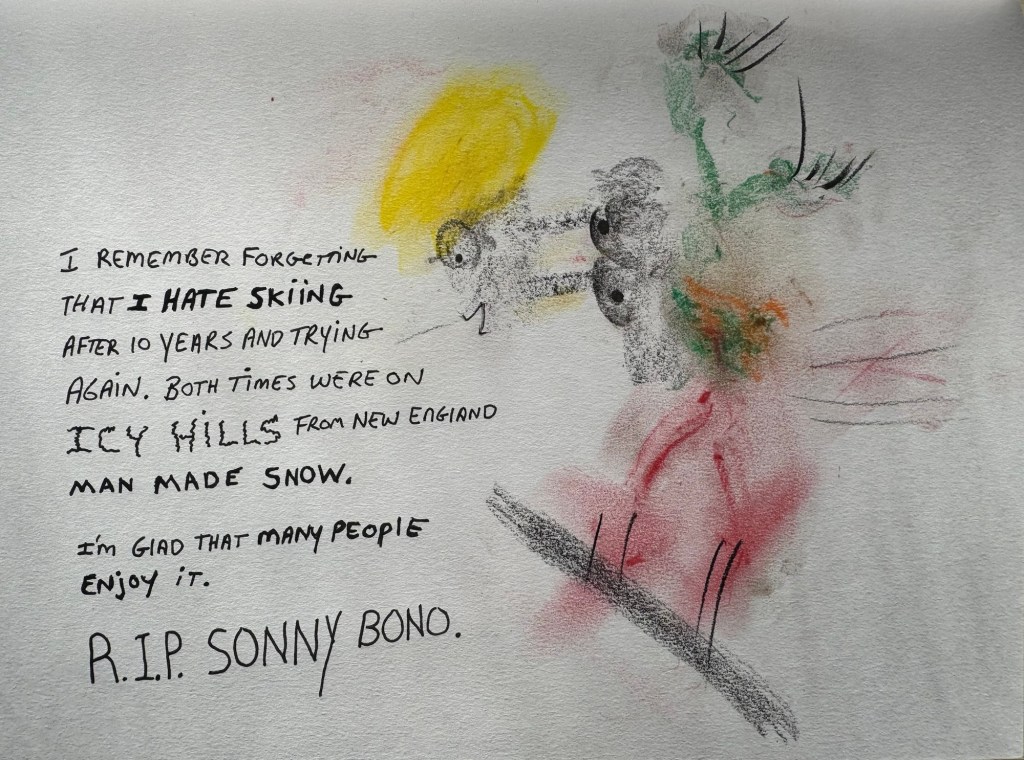 I REMEMBER FORGETTING
THAT I HATE SKiiNG
AFTER 10 YEARS AND TRYING
AGAIN. BOTH TIMES WERE ON
ICY HILLS FROM NEW ENGLAND
MAN MADE SNOW.
I'm GLAD THAT MANY PEOPlE
ENjOY iT.
R.I.P. SONNY BONO.